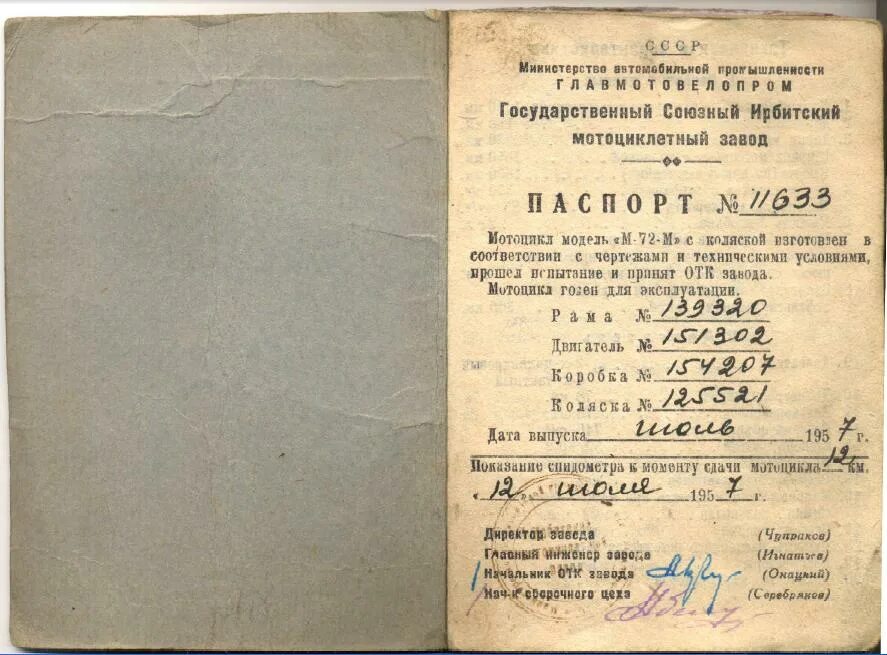 СССР
Министерство автомобильной промышленности
ГЛАВМОТОВЕЛОПРОМ
Государственный Союзный Ирбитский
мотоциклетный завод
ПАСПОРТ № 11633
Мотоцикл модель «М-72-М» с коляской изготовлен в
соответствии с чертежами и техническими условиями,
прошел испытание и принят ОТК завода.
Мотоцикл годен для эксплуатации.
Рама № 139320
Двигатель № 151302
Коробка № 154207
Коляска № 125521
Дата выпуска июль 1957 г.
Показание спидометра к моменту сдачи мотоцикла 12 км.
„12„ июля 1957 г.
Директор завода (Чупраков)
Главный инженер завода (Игнатьев)
Начальник ОТК завода (Онацкий)
Нач-к сборочного цеха (Серебряков)